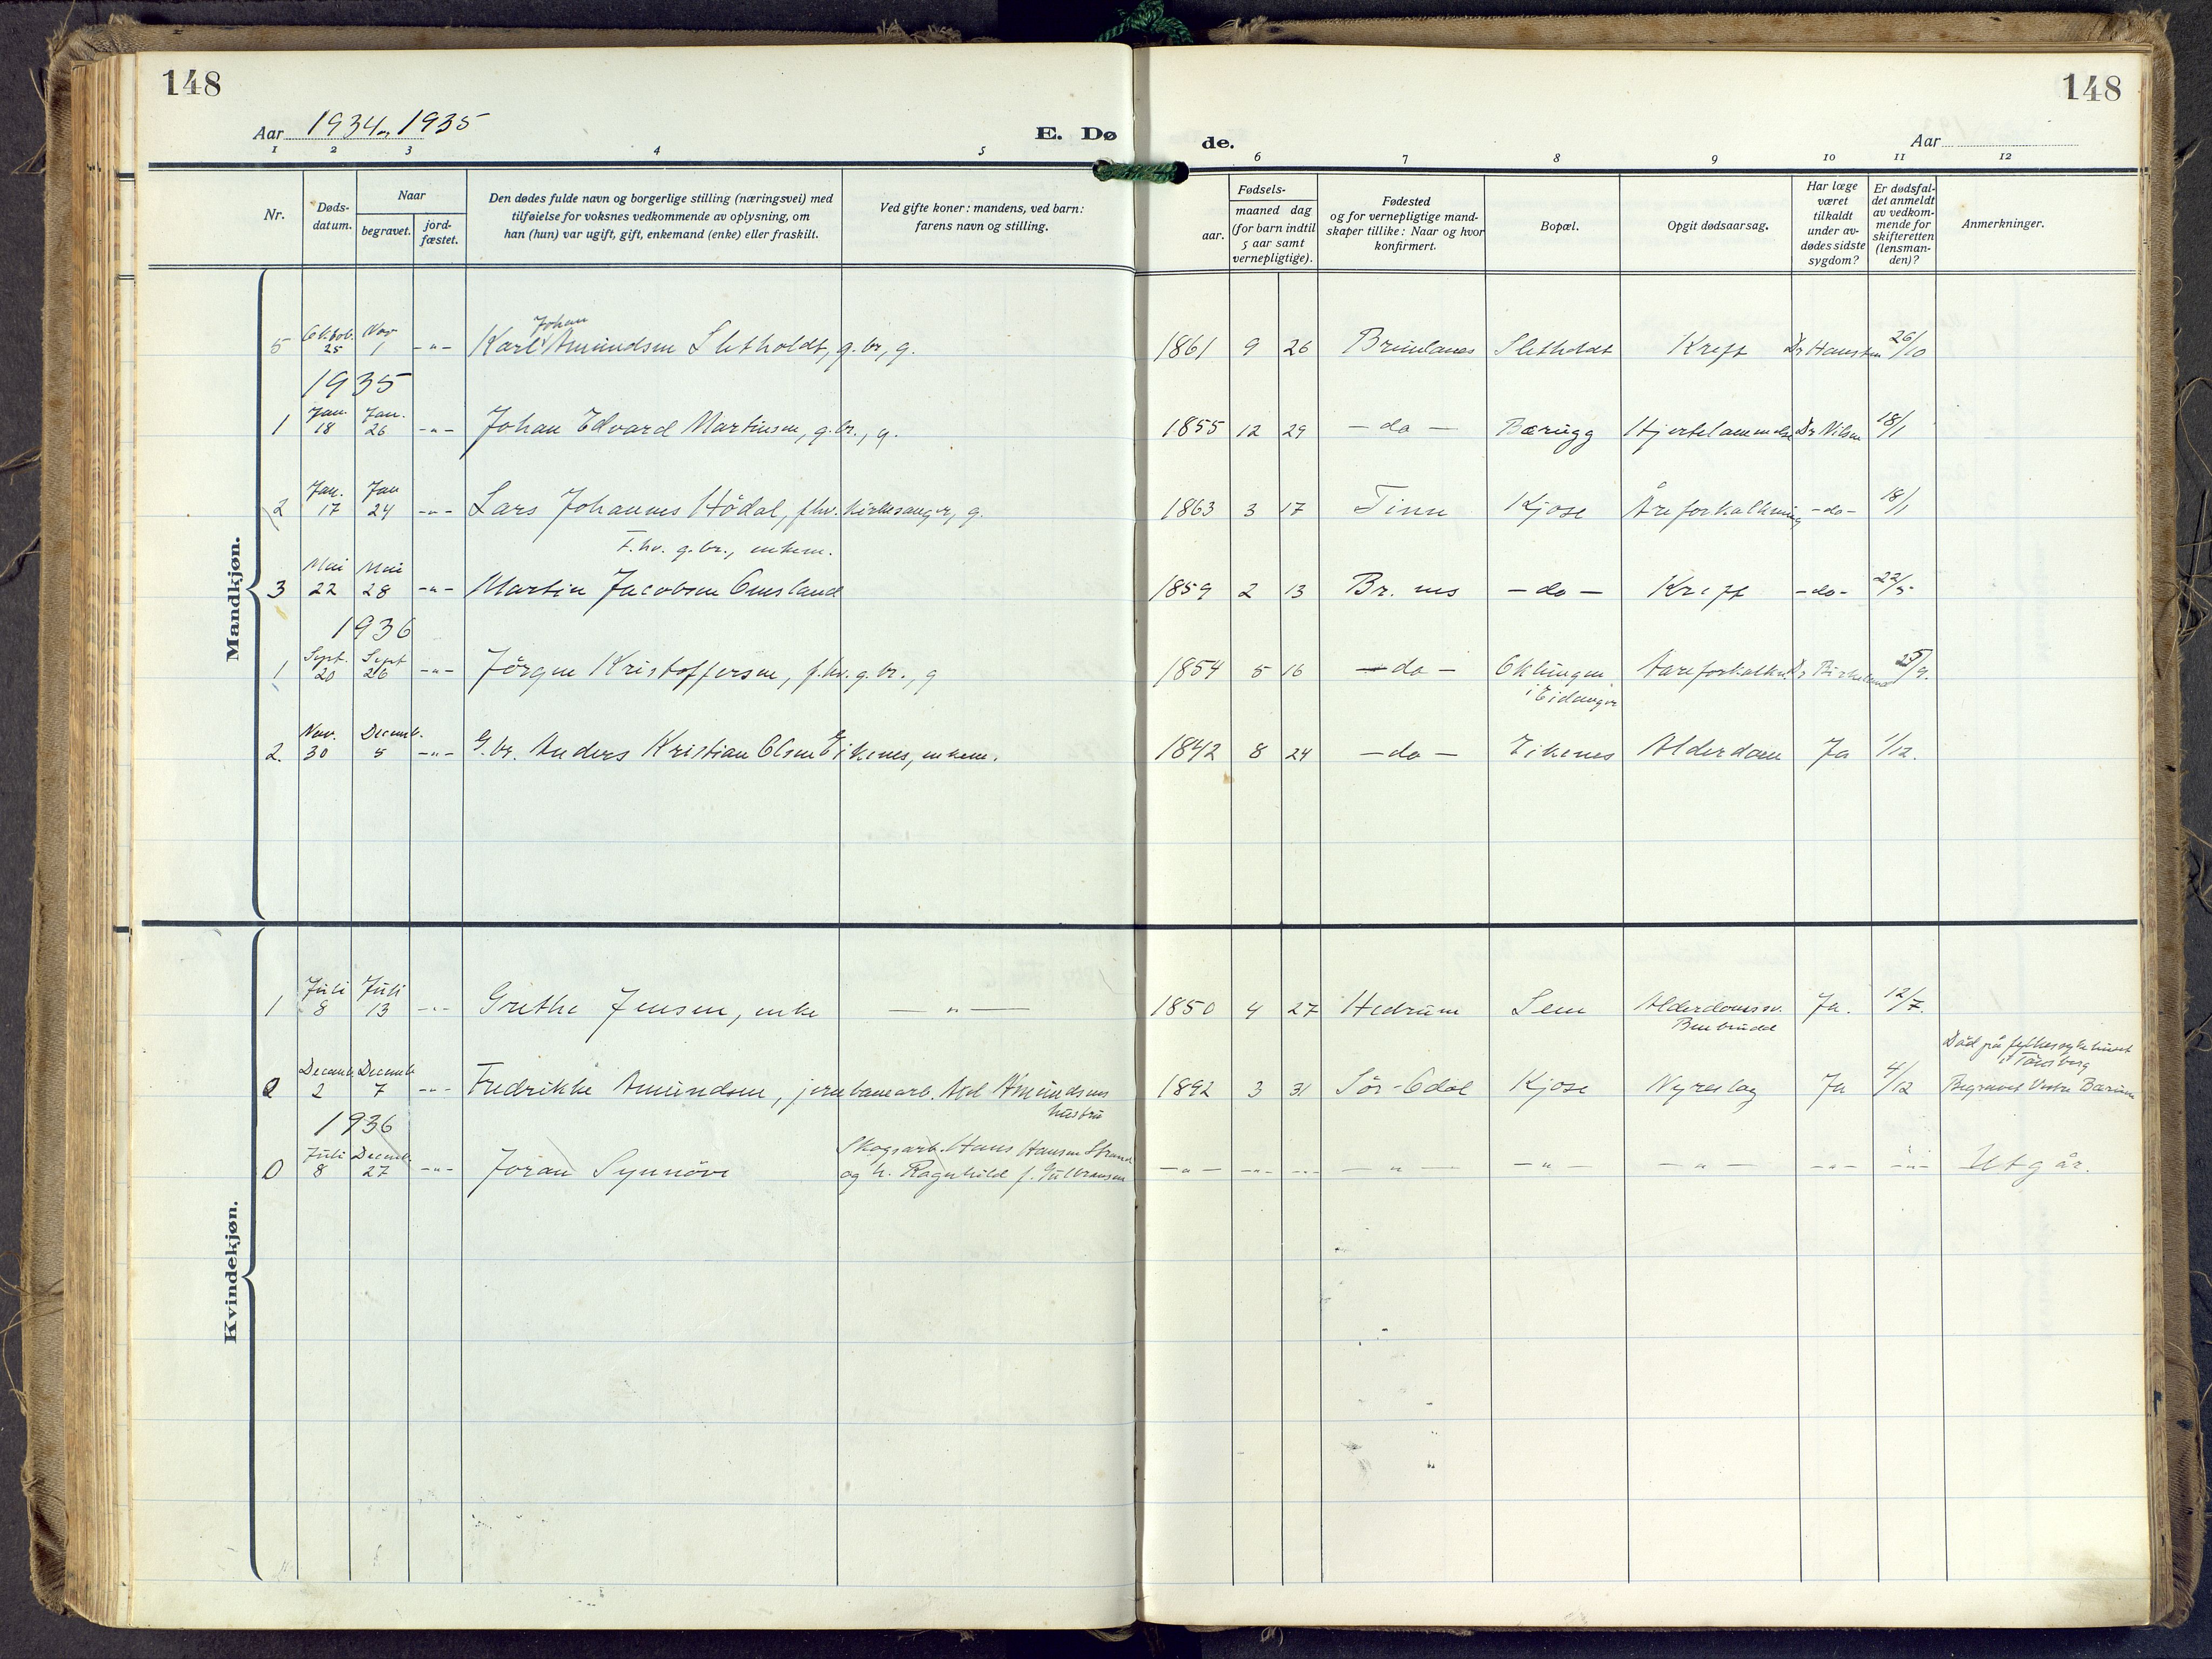 148
148
Aar 1934 og 1935
E. Dø
de.
Aar
1 2 3 4 5
6 7 8 9 10 11 12
Nr.
Dødsdatum.
Naar
begravet.
jordfæstet.
Den dødes fulde navn og borgerlige stilling (næringsvei) med
tilføielse for voksnes vedkommende av oplysning, om
han (hun) var ugift, gift, enkemand (enke) eller fraskilt.
Ved gifte koner: mandens, ved barn:
farens navn og stilling.
Fødsels-
aar.
maaned dag
(for barn indtil
5 aar samt
vernepligtige).
Fødested
og for vernepligtige mand-
skaper tillike: Naar og hvor
konfirmert.
Bopæl.
Opgit dødsaarsag.
Har læge
været
tilkaldt
under av-
dødes sidste
sygdom?
Er dødsfal-
det anmeldt
av vedkom-
mende for
skifteretten
(lensman-
den)?
Anmerkninger.
Mandkjøn.
Johan
5 Oktob. 25 Nov 1 -"- Karl Amundsen Sletholdt, g.br, g. 1861 9 26 Brunlanes Sletholdt Kreft Dr Hansten 26/10
1935
1 Jan. 18 Jan. 26 -"- Johan Edvard Martinsen, g.br., g. 1855 12 29 - do - Bærugg Hjertelammelse Dr Nilsen 18/1
2 Jan. 17 Jan 24 -"- Lars Johannes Hödal, fhv. kirkesanger, g. 1863 3 17 Tinn Kjose Åreforkalkning -do- 18/1
F.hv. g.br., enkem.
3 Mai 22 Mai 28 -"- Martin Jacobsen Omsland 1859 2 13 Br. nes - do - Kreft -do- 22/5
1936
1 Sept. 20 Sept 26 -"- Jörgen Kristoffersen, f.hv. g.br., g 1854 5 16 - do - Oklungen Aareforkalkn. Dr Birkeland 25/9.
i Eidanger
2. Nov. 30 Decemb. 5 -"- G.br. Anders Kristian Olsen Eikenes, enkem. 1842 8 24 - do - Eikenes Alderdom Ja 1/12.
Kvindekjøn.
1 Juli 8 Juli 13 -"- Grethe Jensen, enke - " - 1850 4 27 Hedrum Sem Alderdomssv. Ja. 12/7.
Benbrudd
Död på fylkessykehuset
i Tönsberg
2 Decemb. 2 Decemb 7 -"- Fredrikke Amundsen, jernbanearb. Axel Amundsens 1892 3 31 Sör-Odal Kjose Nyreslag Ja 4/12 Begravet Vestre Bærum
hustru
1936
Skogsarb. Hans Hansen Strand
0 Juli 8 Decemb. 27 -"- Joran Synnöve og h. Ragnhild f. Gulbransen -"- -"- -"- -"- -"- -"- -"- -"- Utgår.